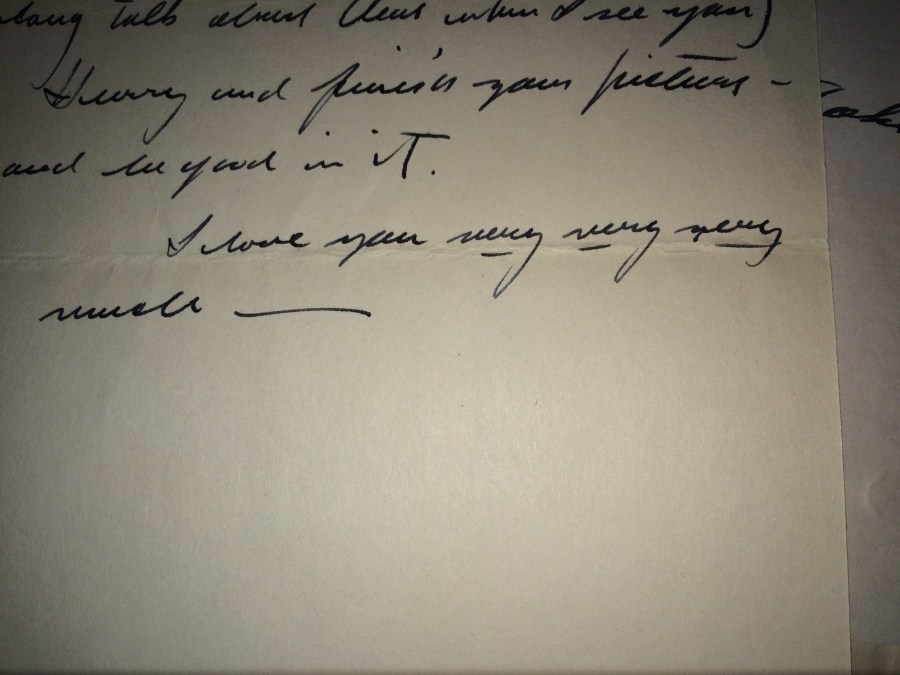 long talk about that when I see you)
Hurry and finish your picture –
and be good in it.
I love you very very very
much —